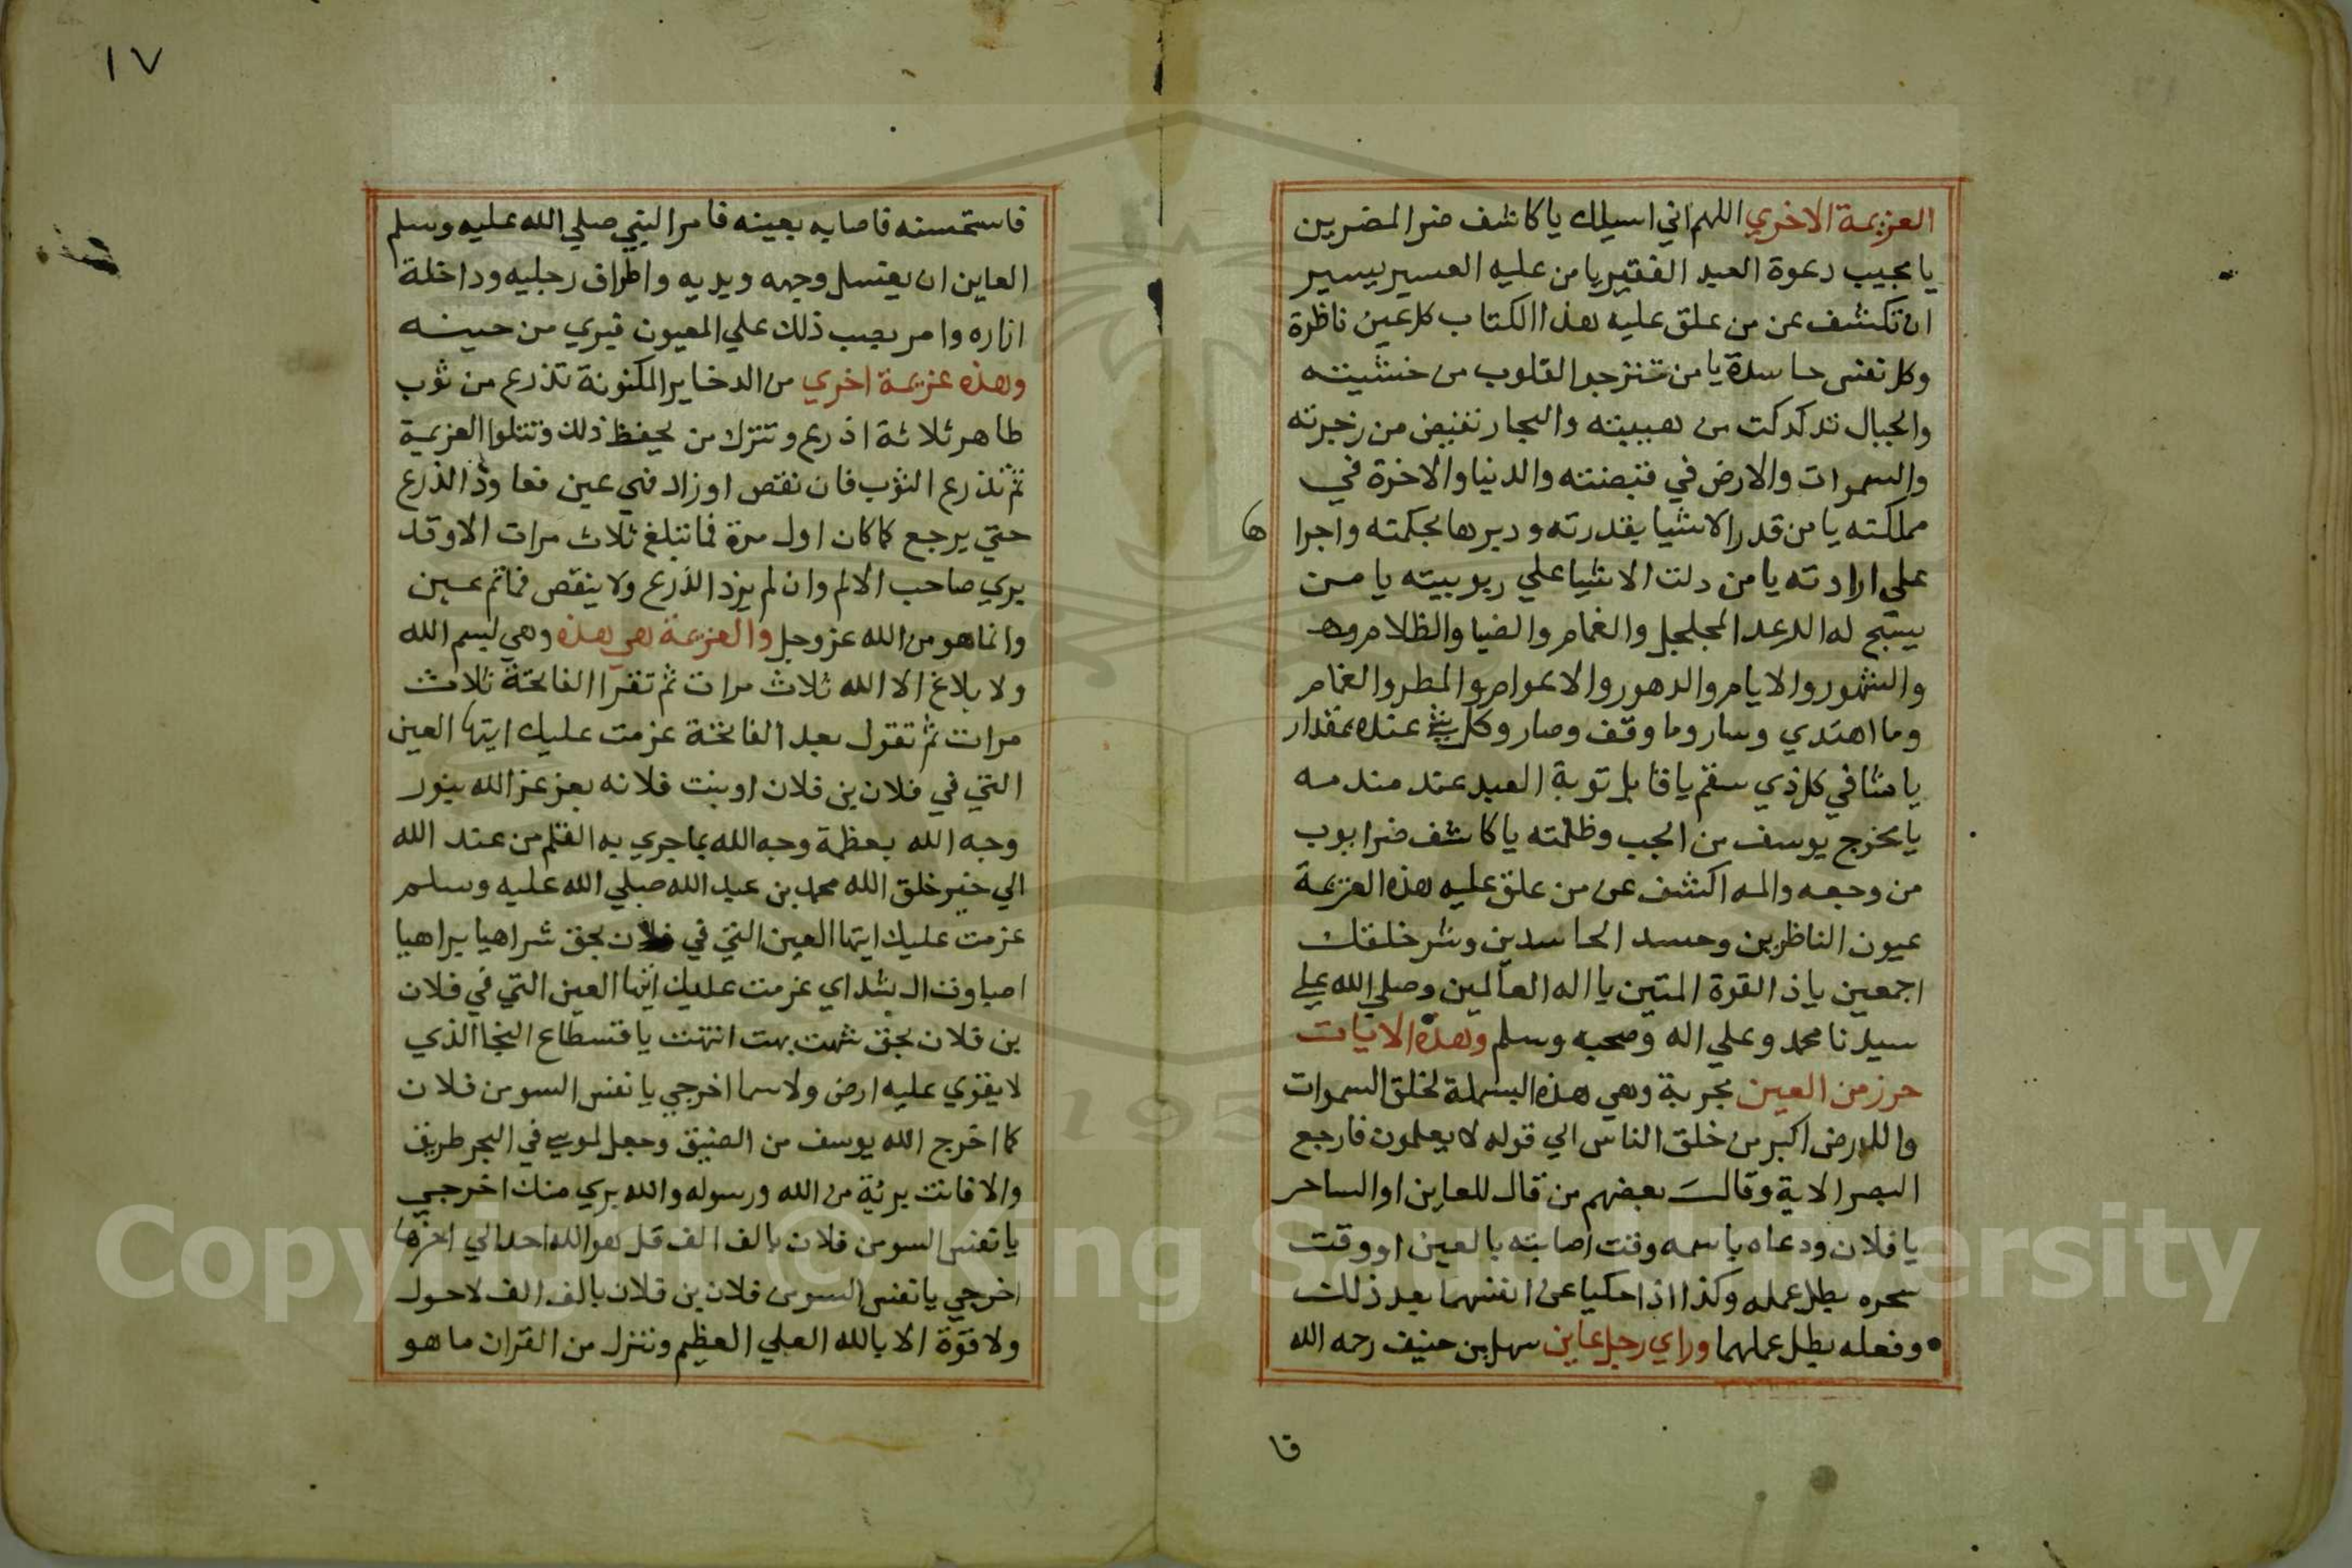 العزيمة الاخري اللهم اني اسيلك يا كاشف ضر المضرين
يا مجيب دعوة العبد الفقير يا من عليه العسير يسير
ان تكشف عن من علق عليه هذا الكتاب كل عين ناظرة
وكل نفس حاسدة يا من تنزجوا القلوب من خشيته
والجبال تدكدكت من هيبته والبحار تفيض من زجرته
والسموات والارض في قبضته والدنيا والاخرة في
مملكته يا من قدر الاشيا بقدرته ودبرها بحكمته واجراها
علي ارادته يا من دلت الاشيا علي ربوبيته يا من
يسبح له الرعد المجلجل والغمام والضيا والظلام وهـ
والشهور والايام والدهور والاعوام والمطر والغمام
وما اهتدي وسار وما وقف وصار وكل شي عنده بمقدار
يا شافي كل ذي سقم يا قابل توبة العبد عند مندمه
يا مخرج يوسف من الجب وظلمته يا كاشف ضر ايوب
من وجعه والمه اكشف عن من علق عليه هذه العزيمة
عيون الناظرين وحسد الحاسدين وشر خلقك
اجمعين يا ذا القوة المتين يا اله العالمين وصلي الله علي
سيدنا محمد وعلي اله وصحبه وسلم وهذه الايات
حرز من العين مجربة وهي هذه البسملة لخلق السموات
والارض اكبر من خلق الناس الي قوله لا يعلمون فارجع
البصر الاية وقالت بعضهم من قال للعاين او الساحر
يا فلان ودعاه باسمه وقت اصابته بالعين او وقت
سحره بطل عمله وكذا اذا حكيا عن انفسهما بعد ذلك
وفعله بطل عملهما وراي رجل عاين سهل بن حنيف رحمه الله
فا
١٧
فاستحسنه فاصابه بعينه فامر النبي صلي الله عليه وسلم
العاين ان يغتسل وجهه ويديه واطراف رجليه وداخلة
ازاره وامر بصب ذلك علي المعيون فبري من حينه
وهذه عزيمة اخري من الدخاير المكنونة تذرع من ثوب
طاهر ثلاثة اذرع وتترك من يحفظ ذلك وتتلوا العزيمة
ثم تذرع الثوب فان نقص او زاد فهي عين فعاود الذرع
حتي يرجع كما كان اول مرة فما تبلغ ثلاث مرات الا وقد
يري صاحب الالم وان لم يزد الذرع ولا ينقص فما ثم عين
وانما هو من الله عز وجل والعزيمة هي هذه وهي ليسم الله
ولا بلاغ الا الله ثلاث مرات ثم تقرا الفاتحة ثلاث
مرات ثم تقول بعد الفاتحة عزمت عليك ايتها العين
التي في فلان بن فلان او بنت فلانه بعز عز الله بنور
وجه الله بعظمة وجه الله بما جري به القلم من عند الله
الي خير خلق الله محمد بن عبد الله صلي الله عليه وسلم
عزمت عليك ايتها العين التي في فلان بحق شراهيا براهيا
اصباوت ال شداي عزمت عليك ايتها العين التي في فلان
بن فلان بحق شهت بهت انتهت يا قسطاع النجا الذي
لا يقوي عليه ارض ولا سما اخرجي يا نفس السو من فلان
كما اخرج الله يوسف من الضيق وجعل لموسي في البحر طريق
والا فانت برئة من الله ورسوله والله بري منك اخرجي
يا نفس السو من فلان بالف الف قل هو الله احد الي اخرها
اخرجي يا نفس السو من فلان بن فلان بالف الف لا حول
ولا قوة الا بالله العلي العظيم وننزل من القران ما هو
Copyright © King Saud University
195